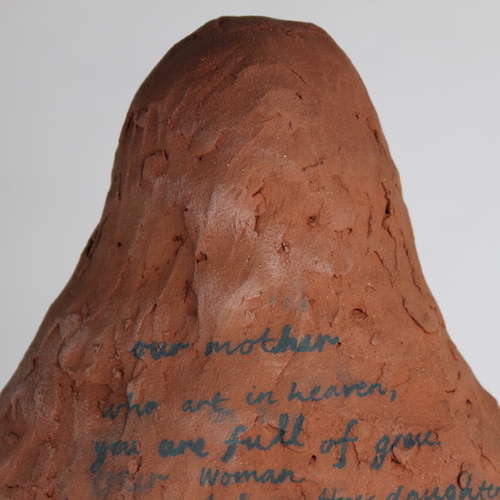 our mother
who art in heaven,
you are full of grace
your woman
thou daughter